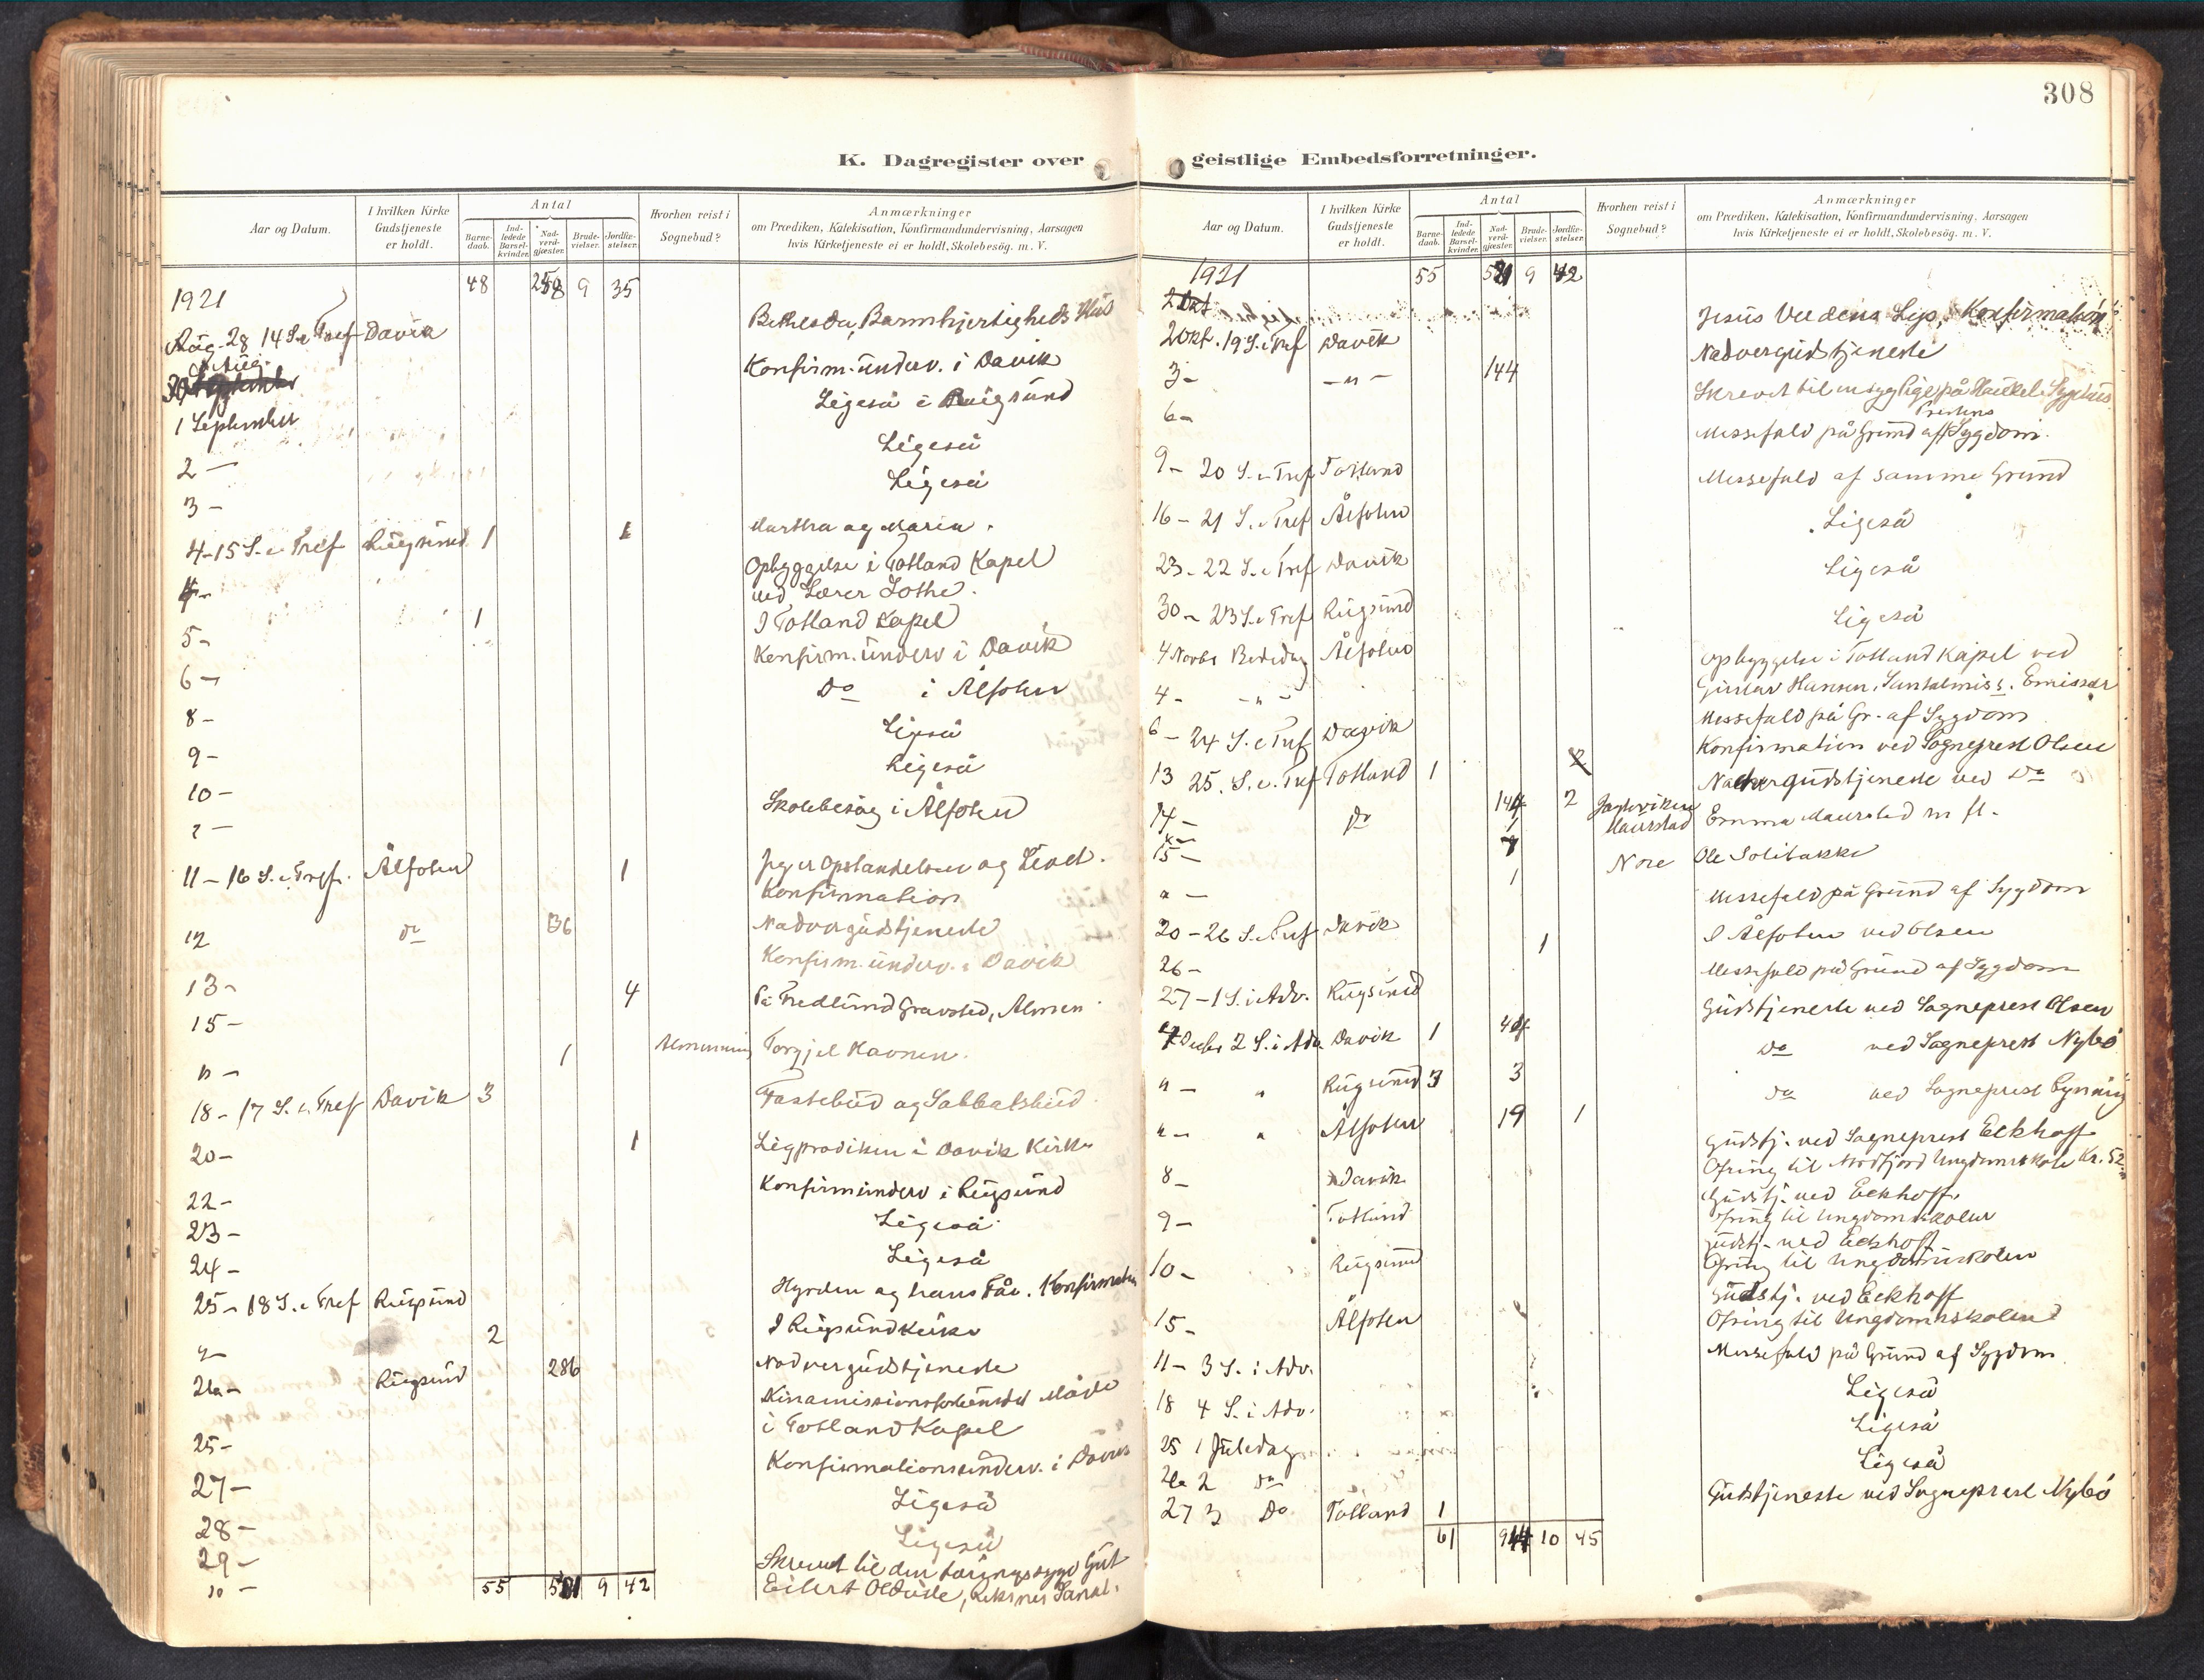 308
K. Dagregister over geistlige Embedsforretninger.
Aar og Datum.
I hvilken Kirke Gudstjeneste er holdt.
Antal
Barnedaab.
Indledede Barselkvinder.
Nadverdgjæster.
Brudevielser.
Jordfæstelser.
Hvorhen reist i Sognebud?
Anmærkninger
om Prædiken, Katekisation, Konfirmandundervisning, Aarsagen
hvis Kirketjeneste ei er holdt, Skolebesög. m. V.
1921 48 258 9 35
Aug. 28 14 S. e Tref Davik Bethesda, Barmhjertigheds Hus
Konfirm. underv. i Davik
1 September Ligeså i Rugsund
2 – Ligeså
3 – Ligeså
4 – 15 S. e Tref Rugsund 1 1 Martha og Maria.
Opbyggelse i Totland Kapel
ved Lærer Lothe.
5 – 1 I Totland Kapel
6 – Konfirm. underv i Davik
8 – Do i Ålfoten
9 – Ligeså
10 – Ligeså
Skolebesøg i Ålfoten
11 – 16 S. e Tref. Ålfoten 1 Jeg er Opstandelsen og Livet.
Konfirmation
12 do 136 Nadvergudstjeneste
13 – Konfirm. underv. i Davik
15 – 4 På Fredlund Gravsted, Almen
" – 1 Almenning Torgjel Havnen.
18 – 17 S. e. Tref Davik 3 Fastebud og Sabbatsbud.
20 – 1 Ligprædiken i Davik Kirke
22 – Konfirmunderv i Rugsund
23 – Ligeså
24 – Ligeså
25 – 18 S. e Tref Rugsund Hyrden og hans Får. Konfirmation
" – 2 I Rugsund Kirke
26 – Rugsund 286 Nadvergudstjeneste
Kinamissionsforbundet Måde
25 – i Totland Kapel
27 – Konfirmationsunderv. i Davik
28 – Ligeså
29 – Ligeså
30 – Skrevet til den tæringssyge Gut
55 581 9 42 Eilert Oldeide,
Aar og Datum.
I hvilken Kirke Gudstjeneste er holdt.
Antal
Barnedaab.
Indledede Barselkvinder.
Nadverdgjæster.
Brudevielser.
Jordfæstelser.
Hvorhen reist i Sognebud?
Anmærkninger
om Prædiken, Katekisation, Konfirmandundervisning, Aarsagen
hvis Kirketjeneste ei er holdt, Skolebesög. m. V.
1921 55 581 9 42
2 Okt. 19 S. e Tref Davik Jesus Verdens Lys. Konfirmation
3 – – " – 144 Nadvergudstjeneste
6 – Skrevet til på Sygehus
9 – 20 S. e Tref Totland Messefald på Grund af Prestens Sygdom.
16 – 21 S. e Tref Ålfoten Messefald af samme Grund
23 – 22 S. e Tref Davik Ligeså
30 – 23 S. e Tref Rugsund Ligeså
4 Novbr Bededag Ålfoten Ligeså
4 – – " – Opbyggelse i Totland Kapel ved
Gustav Hansen, Santalmis s. Emissær
6 – 24 S. e Tref Davik Messefald på Gr. af Sygdom
13 25. S. e. Tref Totland 1 Konfirmation ved Sogneprest Olsen
14 – Do 144 2 Nadvergudstjeneste ved Do
" – 1 Maurstad Emma Maurstad m fl.
15 – Nore Ole Solibakke
" – 1
20 – 26 S. e Tref Davik Messefald på Grund af Sygdom
26 – 1 I Ålfoten ved Olsen
27 – 1 S. i Adv. Rugsund Messefald på Grund af Sygdom
4 Decbr 2 S. i Adv Davik 1 Gudstjeneste ved Sogneprest Olsen
" – " Rugsund 3 3 Do ved Sogneprest Nybö
" – " Ålfoten 19 1 do ved Sogneprest
8 – Davik Gudstj. ved Sogneprest Eckhoff
Ofring til Nordfjord Ungdomsskole Kr. 52
9 – Totland Gudstj. ved Eckhoff.
Ofring til Ungdomsskolen
10 – Rugsund Gudstj. ved Eckhoff
Ofring til Ungdomsskolen
15 – Ålfoten Gudstj. ved Eckhoff
Ofring til Ungdomsskolen
11 – 3 S. i Adv. Messefald på Grund af Sygdom
18 4 S. i Adv. Ligeså
25 1 Juledag Ligeså
26 2 do Ligeså
27 3 Do Totland 1 Gudstjeneste ved Sogneprest Nybö
61 944 10 45